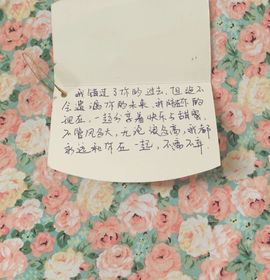 我错过了你的过去,但绝不
会遗漏你的未来,我陪在你的
现在,一起分享着快乐与甜蜜,
不管风多大,无论浪多高,我都
永远和你在一起,不离不弃